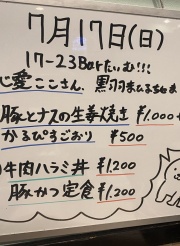 7月17日(日)
17-23Barたいむ!!!
心愛ここさん、黒羽
豚とナスの生姜焼き ¥1,000
かるぴすごおり ¥500
牛肉ハラミ丼 ¥1,200
豚かつ定食 ¥1,200